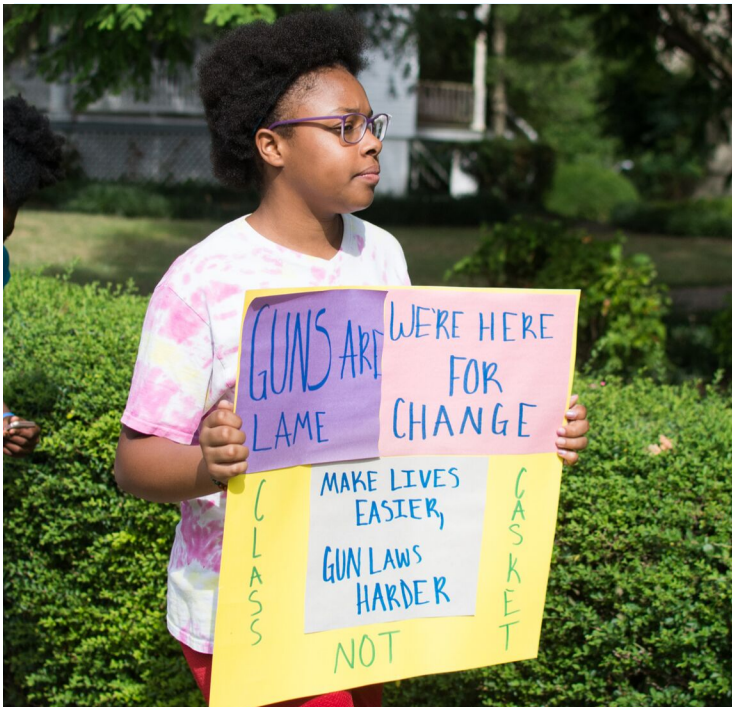 GUNS ARE
LAME
WE'RE HERE
FOR
CHANGE
MAKE LIVES
EASIER,
GUN LAWS
HARDER
CLASS
NOT
CASKET